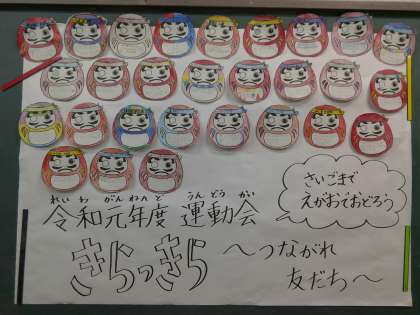 さいごまで
えがおでおどろう
れいわがんねんどうんどうかい
令和元年度 運動会
きらっきら
～つながれ
友だち～